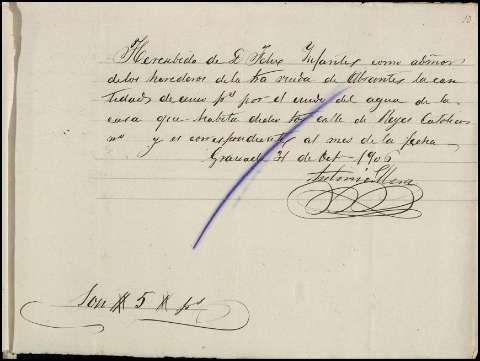 13
He recibido de D. Felix Infantes como admor
de los herederos de la Sra viuda de Abrantes la can-
tidad de cinco pts por el cuido del agua de la
casa que habita dicha Sra calle de Reyes Catolicos
no y es correspondiente al mes de la fecha
Granada 31 de Oct - 1906
Antonio Mesa
Son # 5 # pts